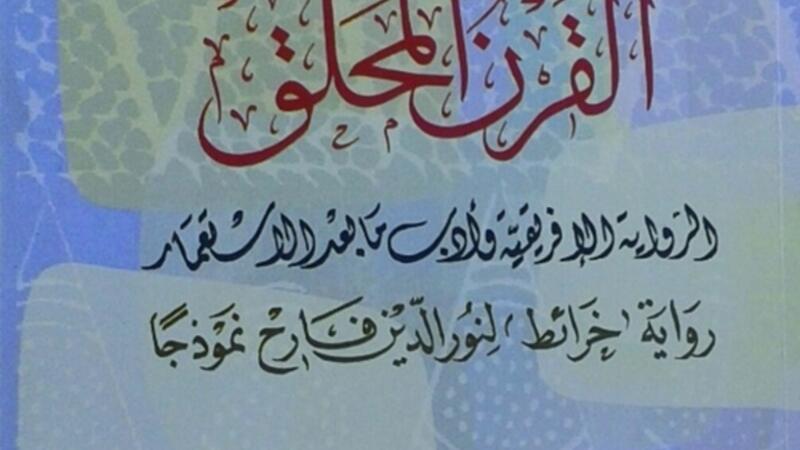 القرن المحلق
الرواية الإفريقية وأدب ما بعد الاستعمار
رواية "خرائط" لنور الدين فارح نموذجًا